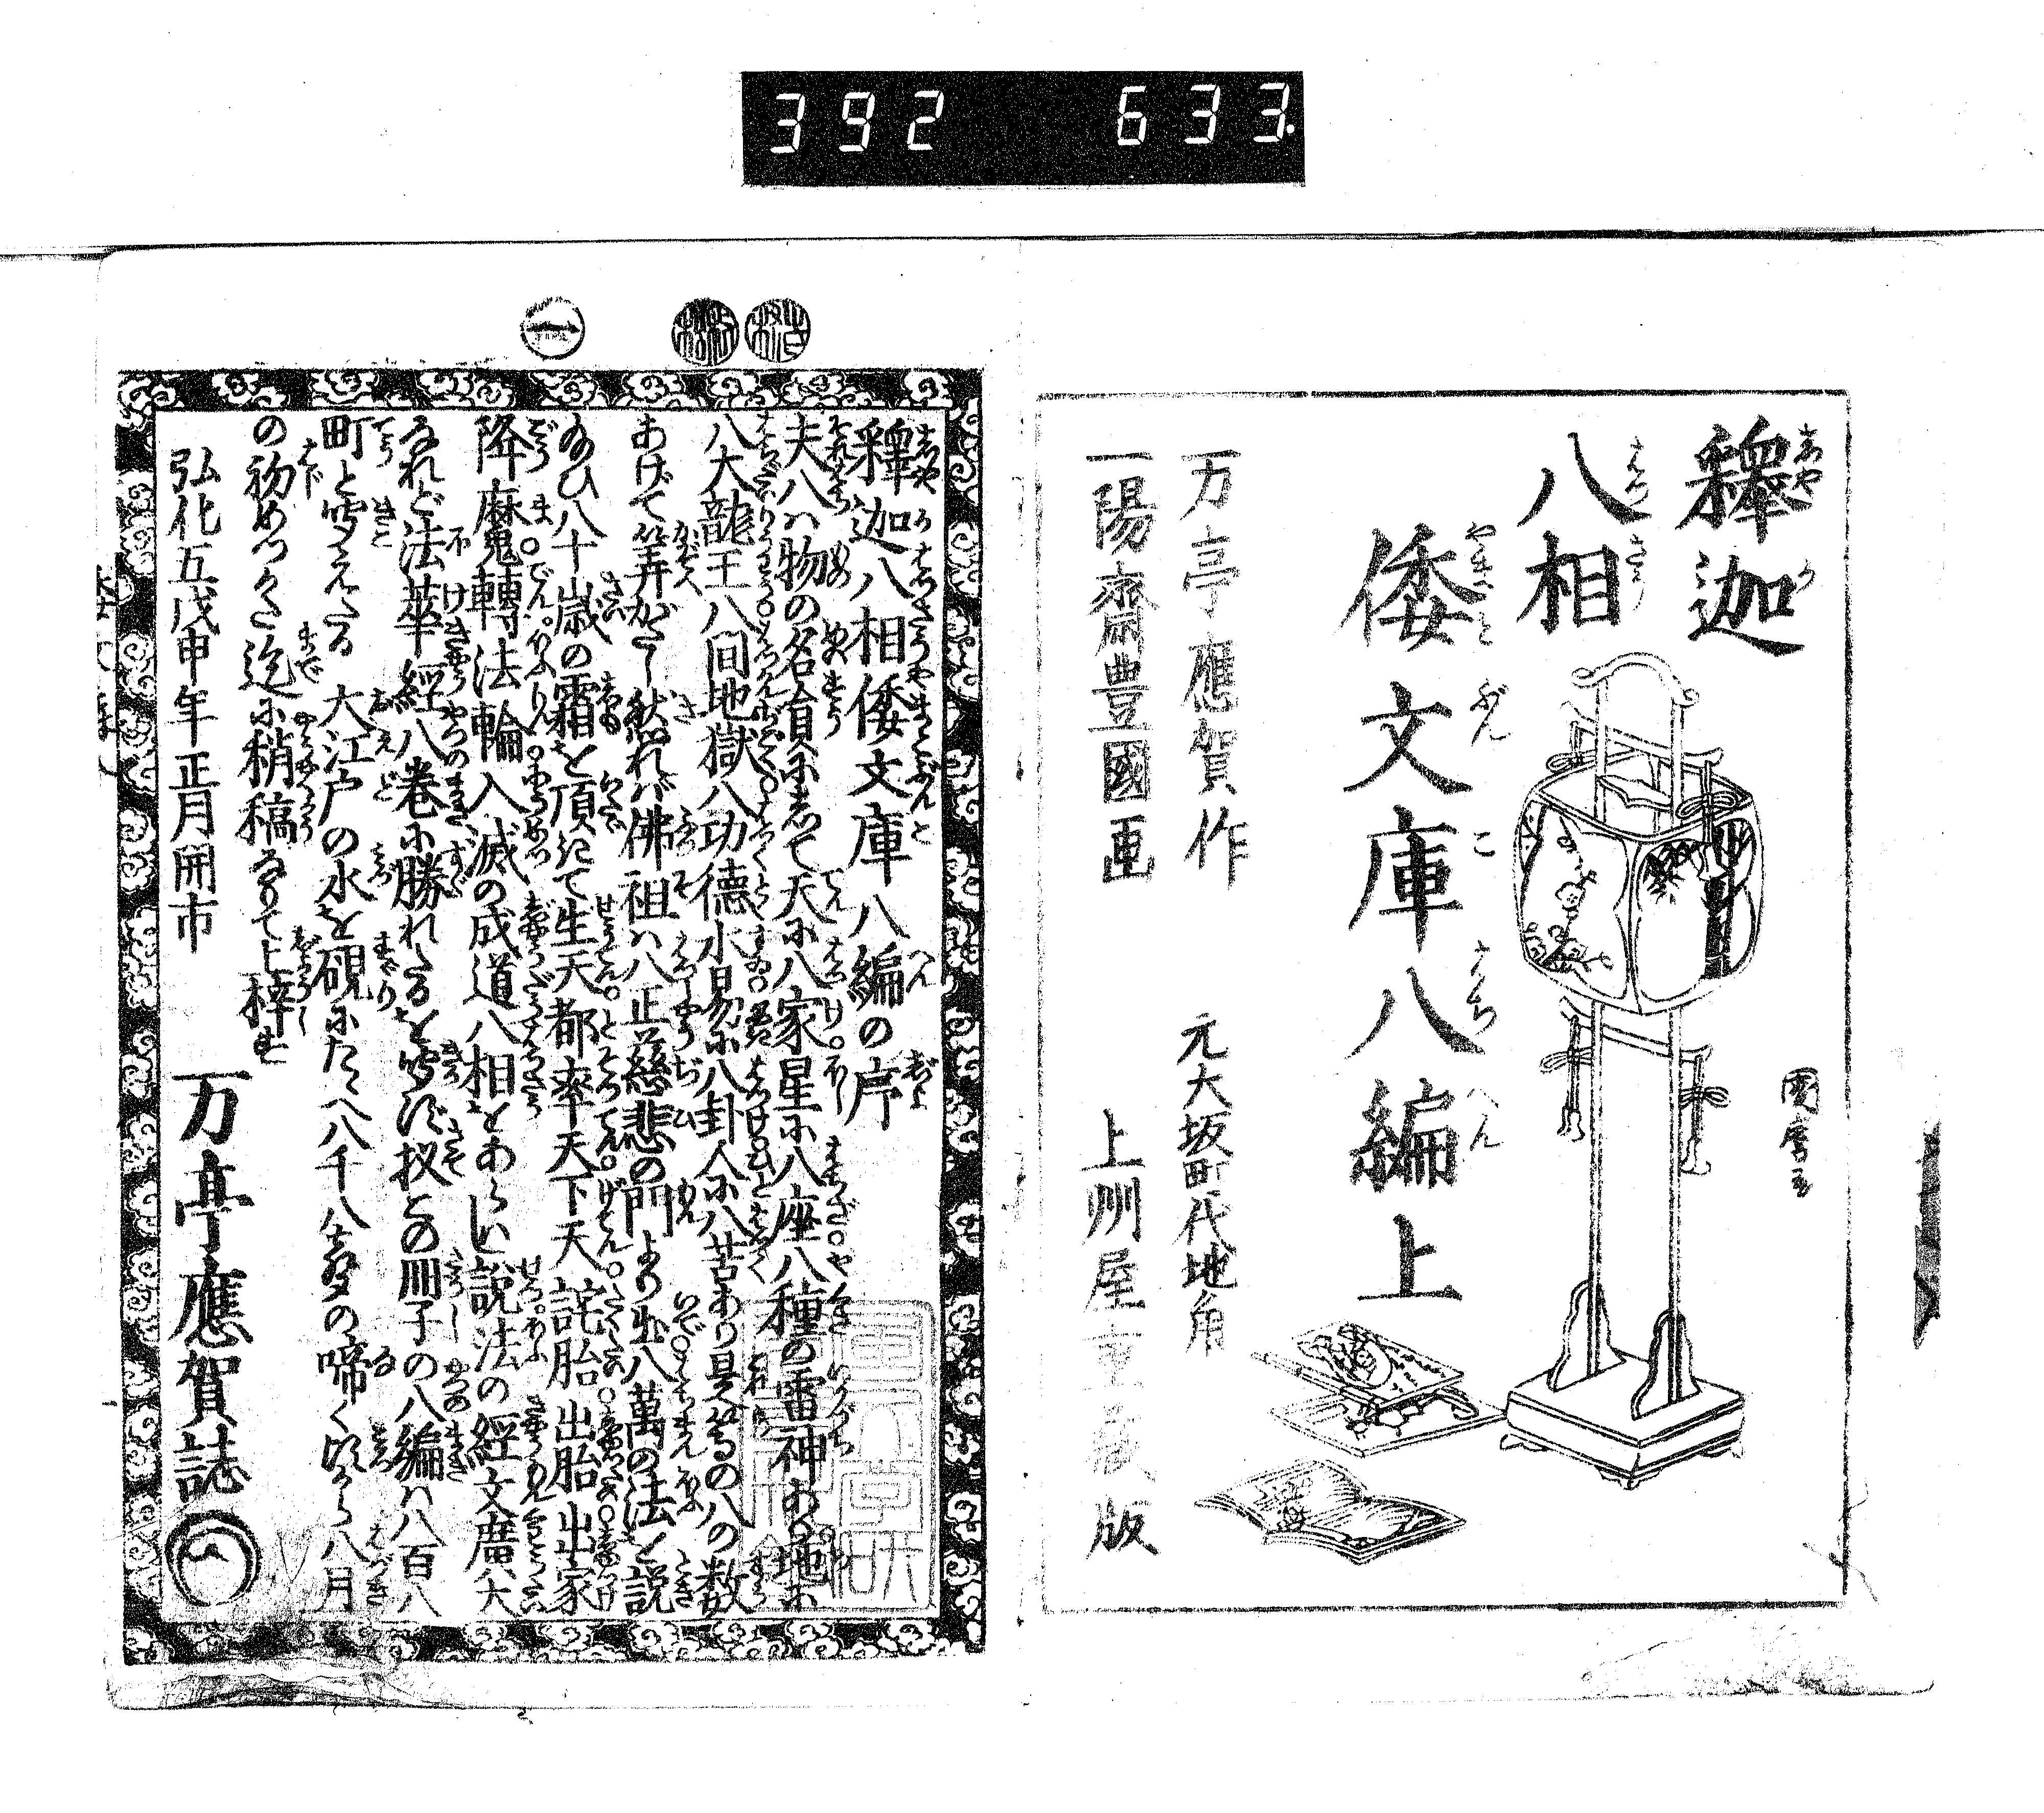 392 633.
釋迦
八相
倭文庫八編上
万亭應賀作
一陽齋豊國画
元大坂町代地角
上州屋重藏版
釋迦八相倭文庫八編の序
夫八ハ物の名員にして天に八家星に八座八種の雷神あり地に
八大龍王八間地獄八功德水易に八卦人に八苦あり是等の八の数
あげて算がたし然れば佛祖ハ八正慈悲の門より出八萬の法を説
給ひ八十歳の霜を頂きて生天都率天下天詫胎出胎出家
降魔轉法輪入滅の成道八相をあらハし説法の經文廣大
なれど法華經八巻に勝れたるを聞ず扨この冊子の八編ハ八百八
町と聞えたる大江戸の水を硯にたゝへ八千八聲の啼く頃から八月
の初めつかた迄に稍稿なりて上梓す
弘化五戊申年正月開市
万亭應賀誌